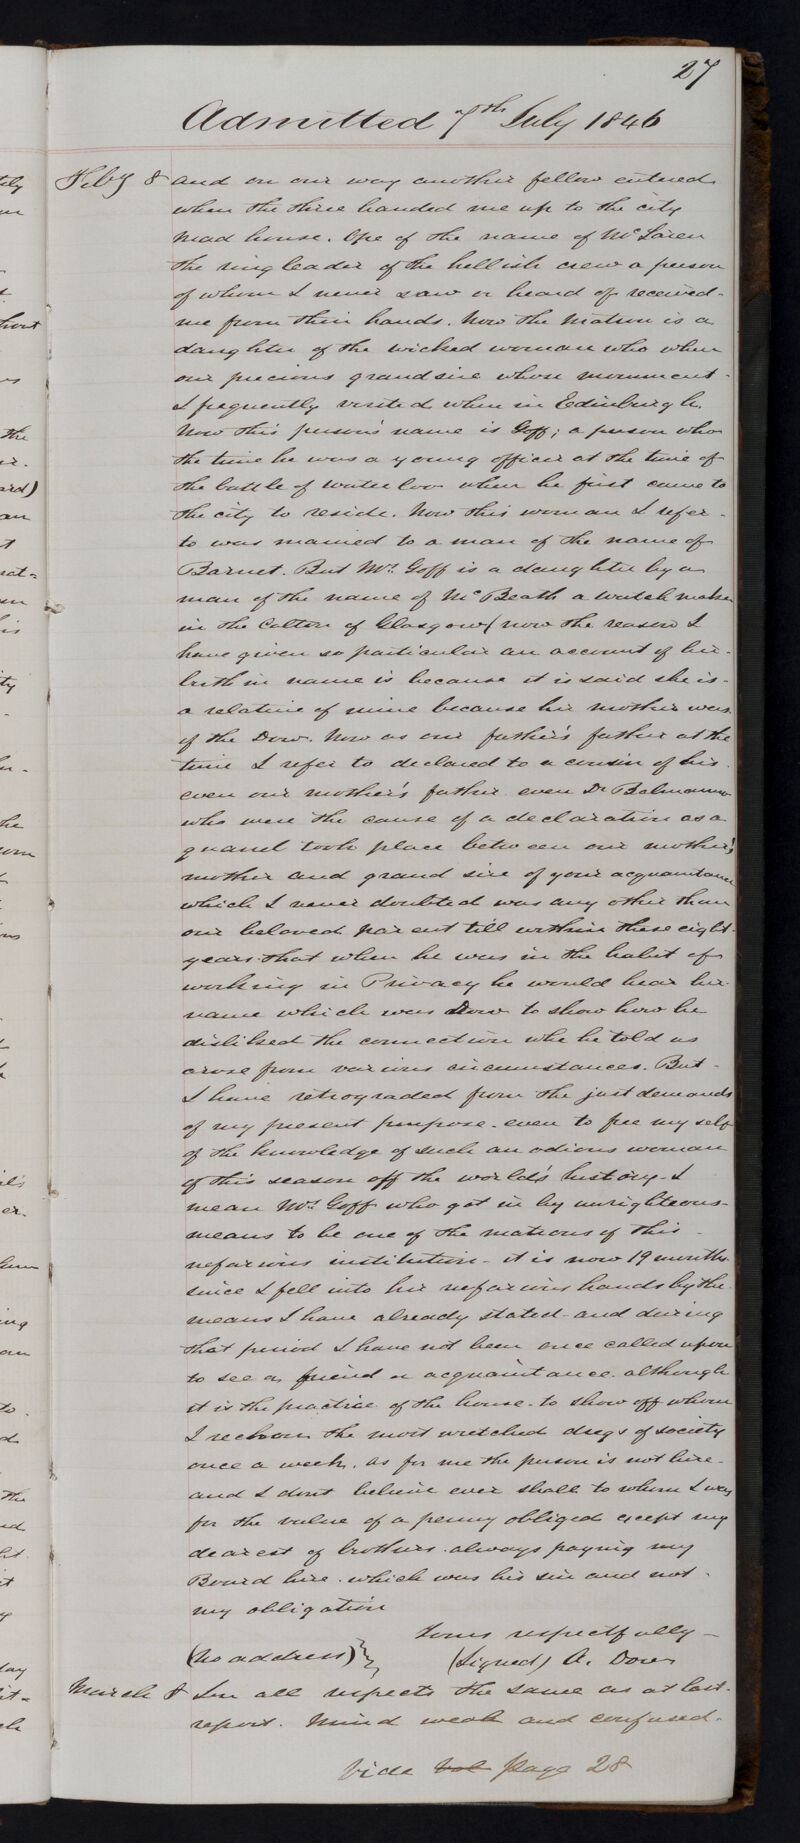 27
Admitted 7th July 1846
Feby 8 and on our way another fellow entered
when the three handed me up to the city
mad house. One of the name of McLaren
the ringleader of the hellish crew a person
of whom I never saw or heard of received
me from their hands. Now the matron is a
daughter of the wicked woman who when
our precious grandsire whose monument
I frequently visited when in Edinburgh.
Now this person's name is Goff; a person who
the time he was a young officer at the time of
the battle of Waterloo when he first came to
the city to reside. Now this woman I refer
to was married to a man of the name of
Barnet. But Mrs. Goff is a daughter by a
man of the name of McBeath a watch maker
in the Calton of Glasgow (now the reason I
have given so particular an account of her
birth in name is because it is said she is
a relative of mine because her mother was
of the Dow. Now as our father's father at the
time I refer to declared to a cousin of his
even our mother's father even Dr Balmanno
who were the cause of a declaration as a
quarrel took place between our mother's
mother and grand sire of your acquaintance
which I never doubted was any other than
our beloved parent till within these eight
years that when he was in the habit of
working in Privacy he would hear her
name which was Dow to show how he
disliked the connection whc he told us
arose from various circumstances. But
I have retrograded from the just demands
of my present purpose. even to free my self
of the knowledge of such an odious woman
of this season off the world's history. I
mean Mrs. Goff who got in by unrighteous
means to be one of the matrons of this
nefarious institution - it is now 19 months
since I fell into her nefarious hands by the
means I have already stated - and during
that period I have not been once called upon
to see a friend or acquaintance. although
it is the practice of the house. to show off whom
I reckon the most wretched dregs of society
once a week. as for me the person is not here
and I dont believe ever shall to whom I was
for the value of a penny obliged except my
dearest of brothers. always paying my
Board here. which was his sin and not
my obligation
Yours respectfully -
(No address)} (Signed) A. Dow
March 8 In all respects the same as at last
report. Mind weak and confused.
Vide Vol page 28